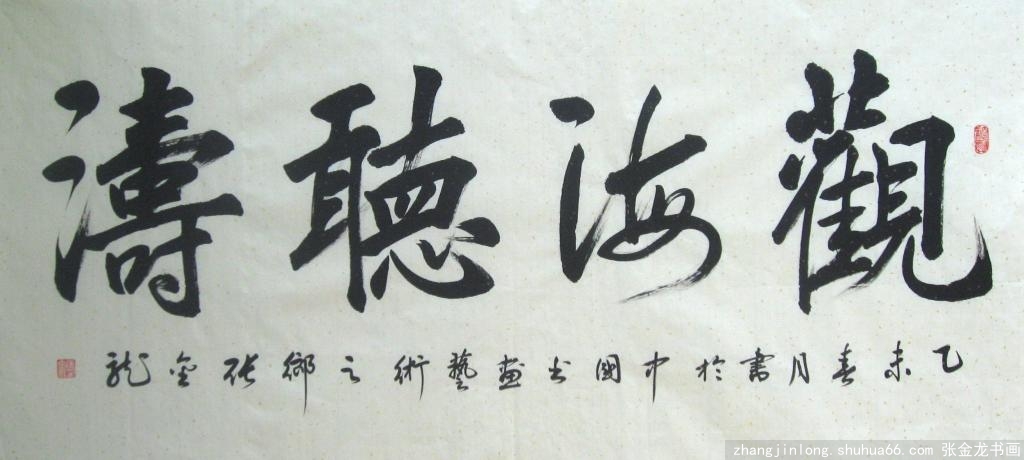 觀海聽濤
乙未春月書於中國书畫藝術之鄉張金龍
zhangjinlong.shuhua66.com 张金龙书画